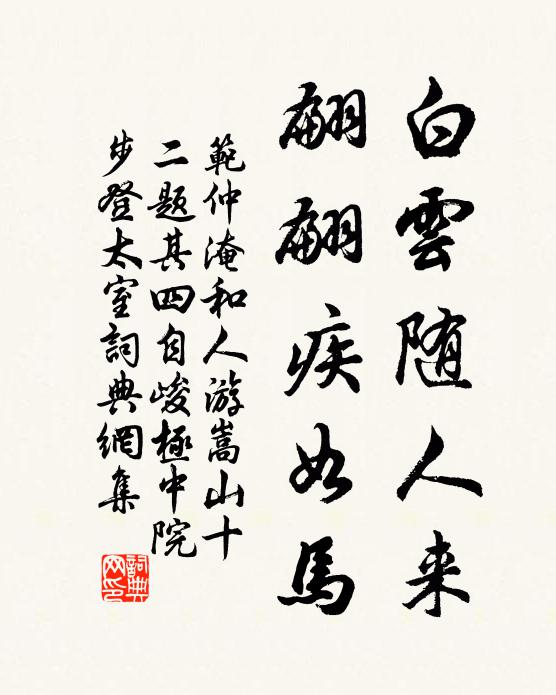 白雲随人来
翩翩疾如馬
範仲淹和人游嵩山十
二題其四自峻極中院
步登太室詞典網集
詞典
网印